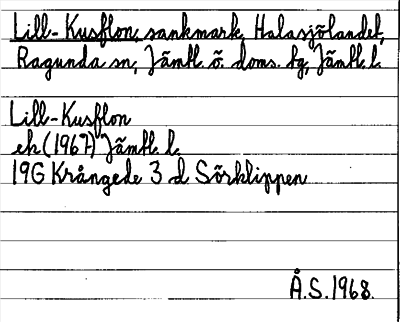 Lill-Kusflon, sankmark, Halasjölandet,
Ragunda sn, Jämtl. ö. doms. tg, Jämtl. l.
Lill-Kusflon
ek (1967) Jämtl. l.
19G Krångede 3 d Sörklippen
Å.S. 1968.